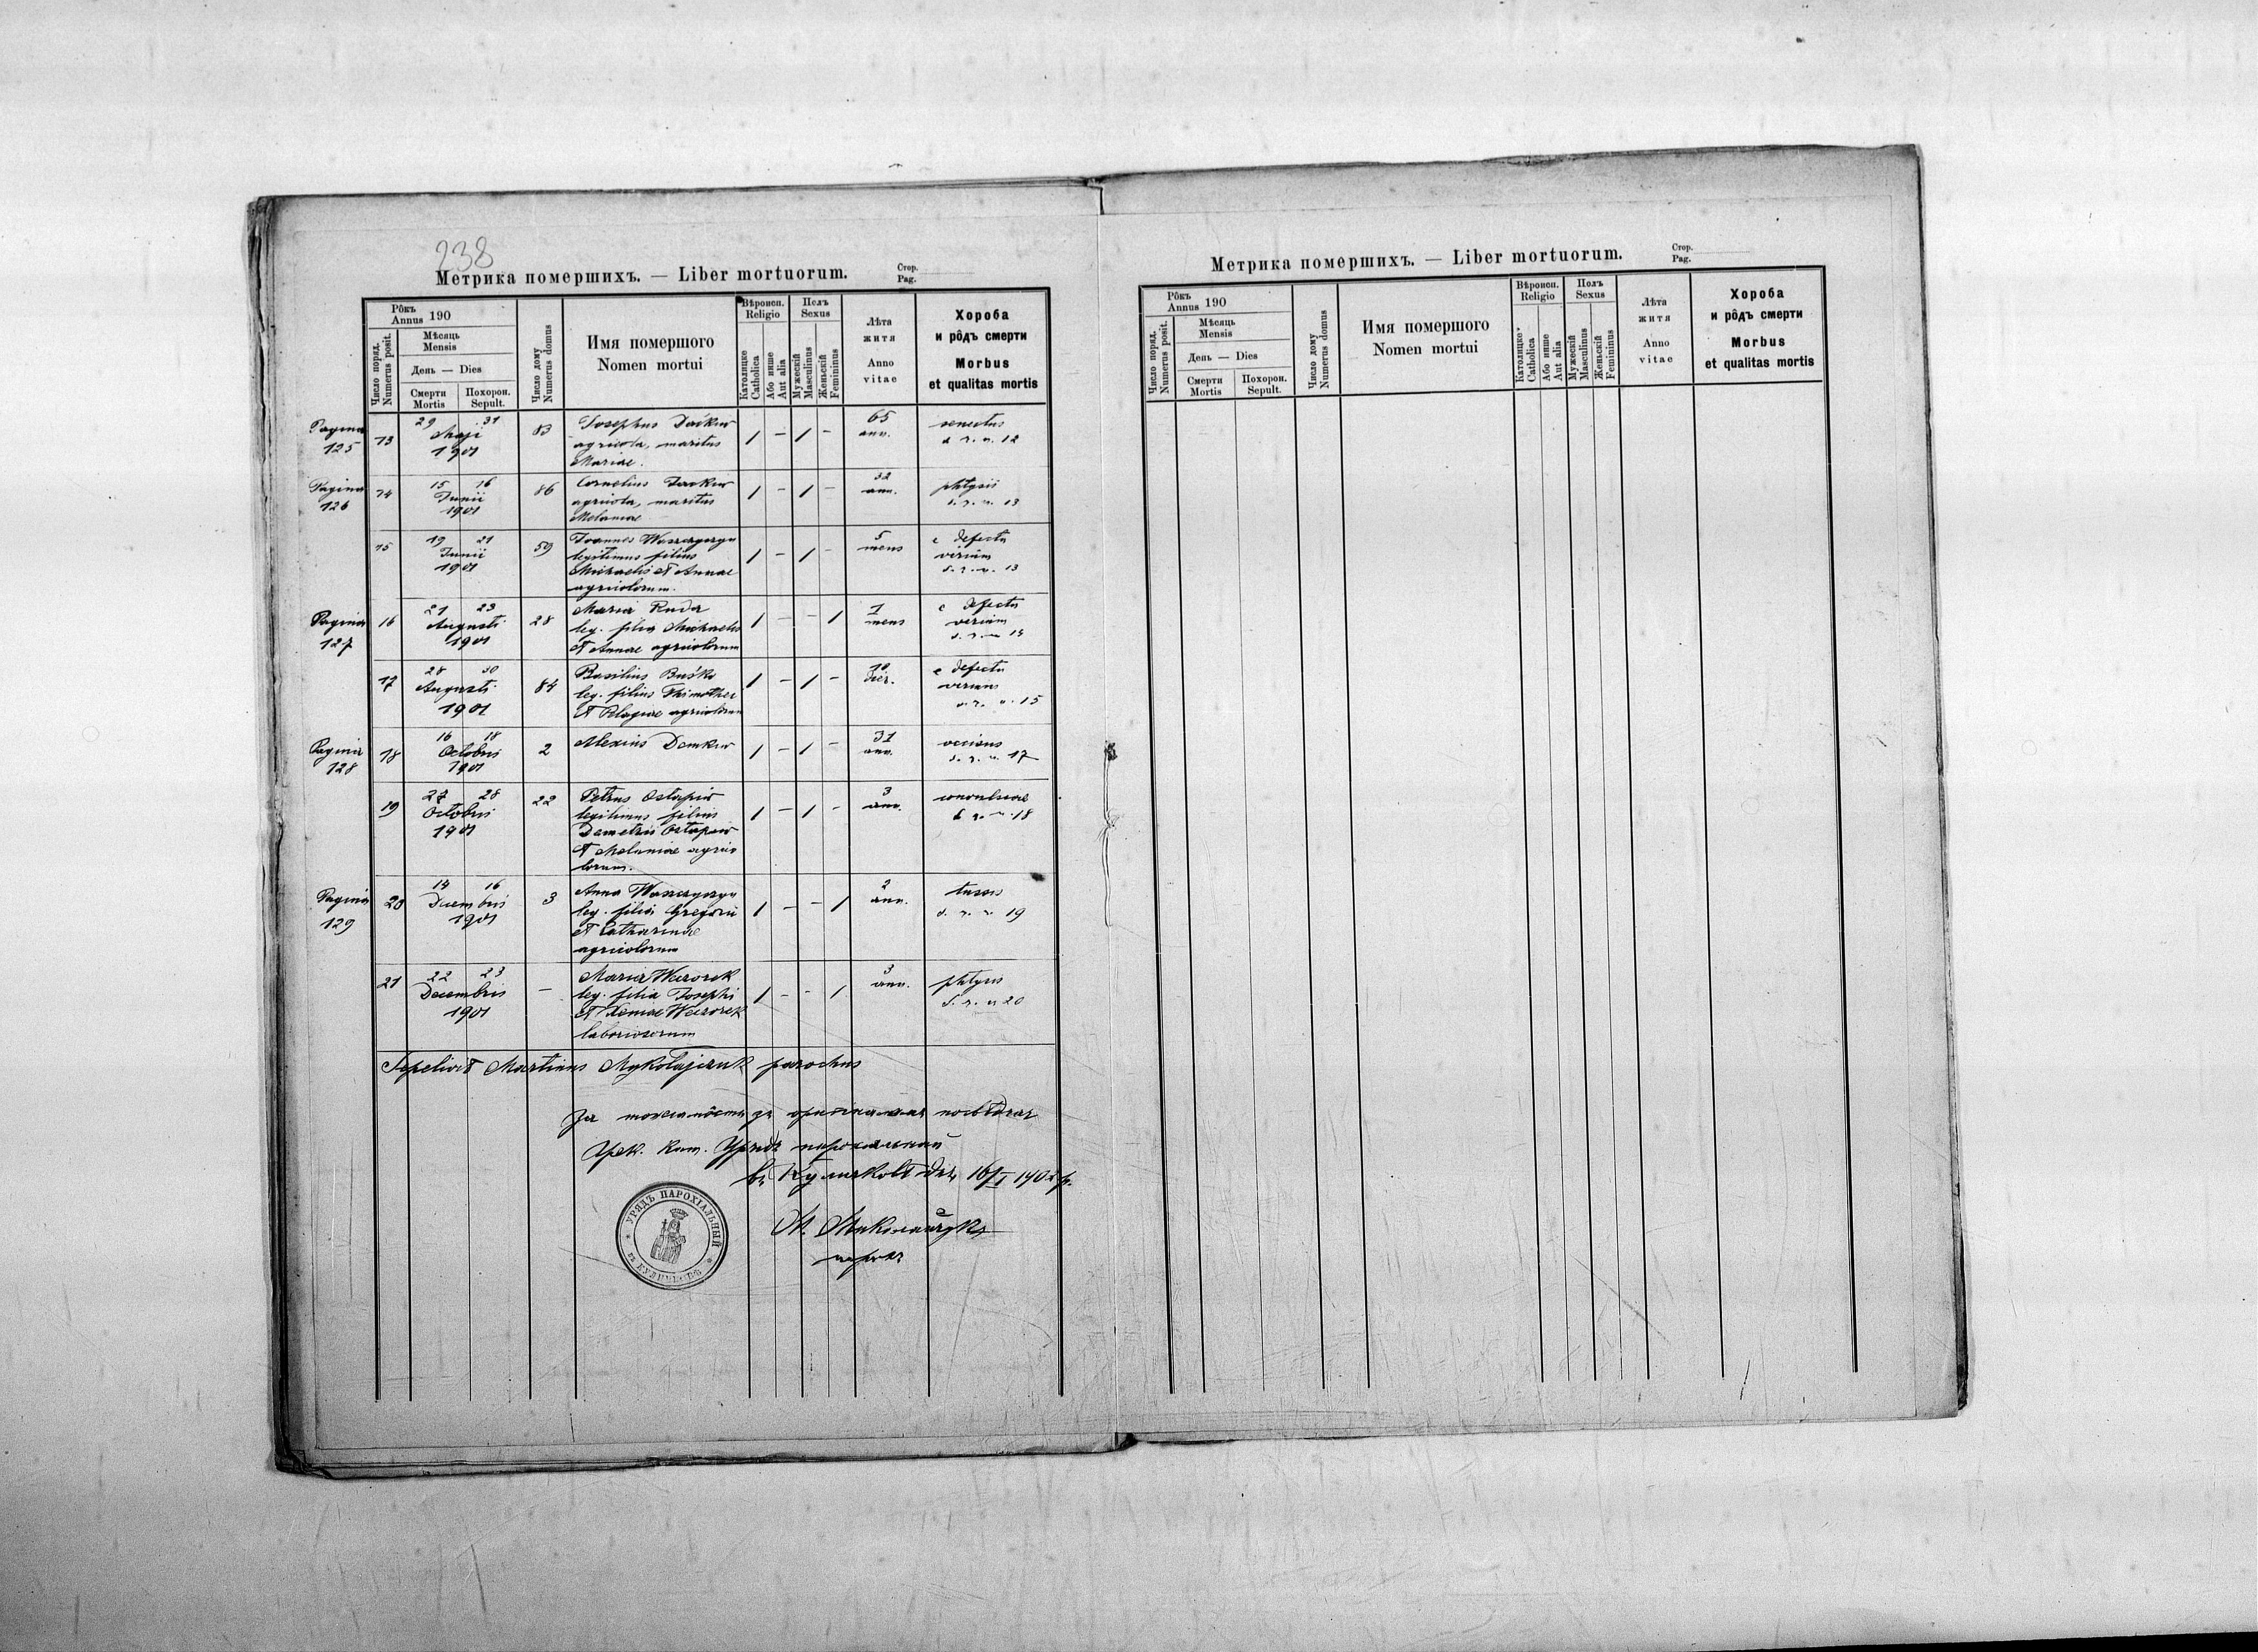 238
Метрика помершихъ. — Liber mortuorum.
Стор.
Pag.
Рôкъ
Annus 190
Мѣсяць
Mensis
День — Dies
Смерти
Mortis
Похорон.
Sepult.
Число поряд.
Numerus posit.
Число дому
Numerus domus
Имя помершого
Nomen mortui
Вѣроисп.
Religio
Католицке
Catholica
Або инше
Aut alia
Полъ
Sexus
Мужескій
Masculinus
Женьскій
Femininus
Лѣта
житя
Anno
vitae
Хороба
и рôдъ смерти
Morbus
et qualitas mortis
Pagina
125
13
29 31
Maji
1901
83
Josephus
agricola, maritus
Mariae.
1 – 1 –
65
ann.
senectus
d. r. n. 12
Pagina
126
14
15 16
Junii
1901
86
Cornelius
agricola, maritus
Melaniae
1 – 1 –
32
ann.
phtysis
d. r. n. 13
15
19 21
Junii
1901
59
Joannes
legitimus filius
Michaelis et Annae
agricolarum.
1 – 1 –
5
mens
e defectu
virium
d. r. n. 13
Pagina
127
16
21 23
Augusti
1901
28
Maria Ruda
leg. filia Michaelis
et Annae agricolarum
1 – – 1
1
mens
e defectu
virium
d. r. n.
17
28 30
Augusti
1901
84
Basilius Buśko
leg. filius Thimothei
et Pelagiae agricolarum
1 – 1 –
10
dier.
e defectu
virium
d. r. n. 15
Pagina
128
18
16 18
Octobris
1901
2
Alexius Demkiw
1 – 1 –
31
ann.
occisus
d. r. n. 17
19
27 28
Octobris
1901
22
Petrus Ostapiw
legitimus filius
Demetrii Ostapiw
et Melaniae agrico
larum.
1 – 1 –
3
ann.
d. r. n. 18
Pagina
129
20
14 16
Decembris
1901
3
Anna
leg. filia Gregorii
et Catharinae
agricolarum
1 – – 1
2
ann.
tussis
d. r. n. 19
21
22 23
Decembris
1901
–
Maria
leg. filia Josephi
et Xeniae
laboriosorum
1 – – 1
3
ann.
phtysis
d. r. n 20
Sepelivit Martinus Mykołajczuk parochus
За тожсамôсть зъ оригиналомъ посвѣдчає
Грек. кат. Урядъ парохіяльный
въ Куличковѣ дня 16/I 1902 р.
М. Миколайчукъ
парохъ
УРЯДЪ ПАРОХІАЛЬНЫЙ
въ КУЛИЧКОВѢ
Метрика помершихъ. — Liber mortuorum.
Стор.
Pag.
Рôкъ
Annus 190
Мѣсяць
Mensis
День — Dies
Смерти
Mortis
Похорон.
Sepult.
Число поряд.
Numerus posit.
Число дому
Numerus domus
Имя помершого
Nomen mortui
Вѣроисп.
Religio
Католицке
Catholica
Або инше
Aut alia
Полъ
Sexus
Мужескій
Masculinus
Женьскій
Femininus
Лѣта
житя
Anno
vitae
Хороба
и рôдъ смерти
Morbus
et qualitas mortis